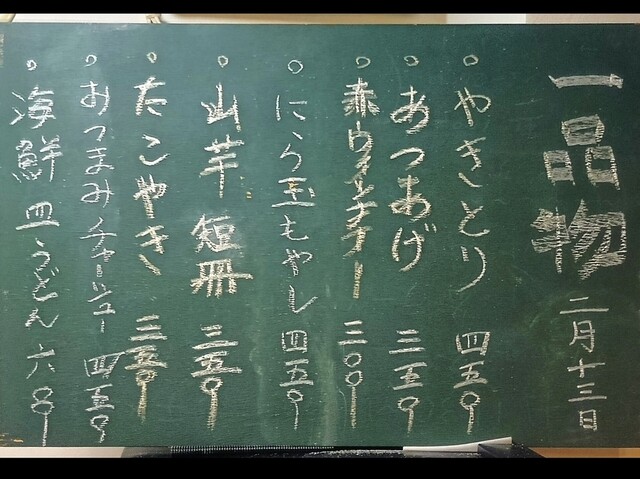 一品物 二月十三日
。やきとり 四五〇
。あつあげ 三五〇
。赤ウィンナー 三〇〇
。にら玉もやし 四五〇
。山芋 短冊 三五〇
。たこやき 三五〇
。おつまみチャーシュー 四五〇
。海鮮皿うどん 六八〇